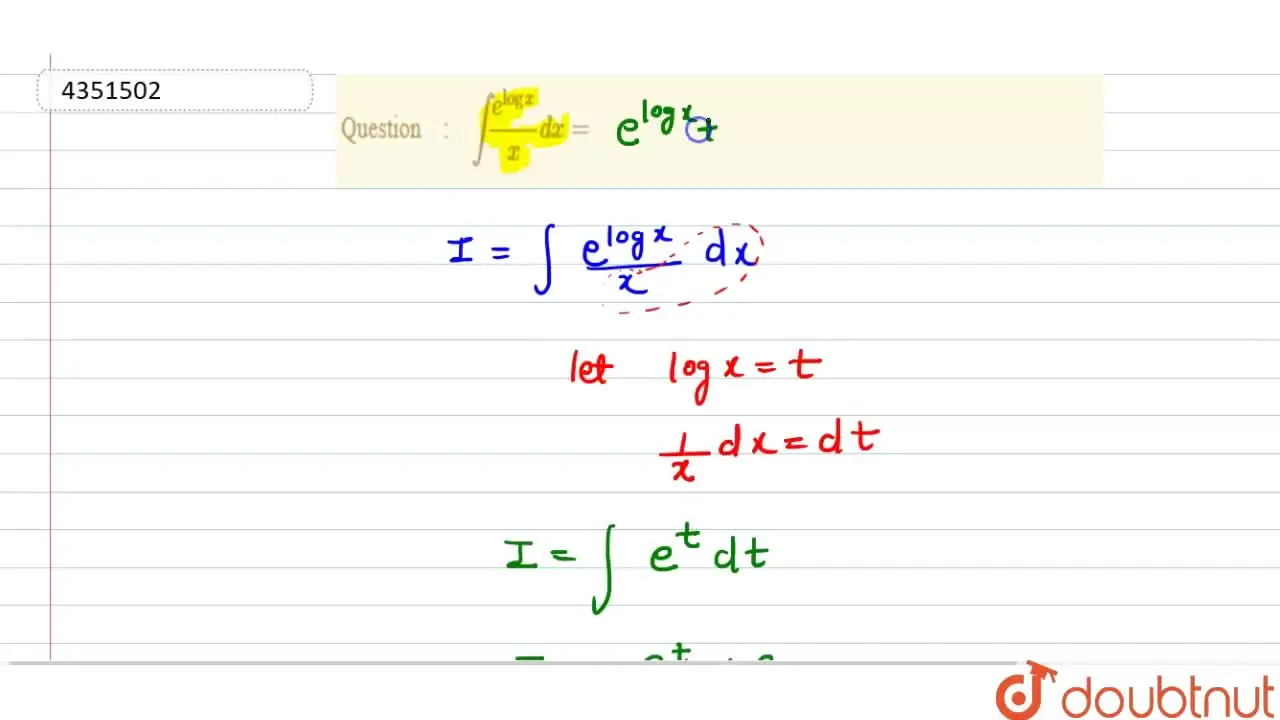 4351502
Question : ∫ e^{log x}/x dx = e^{log x} +
I = ∫ e^{log x}/x dx
let log x = t
1/x dx = dt
I = ∫ e^t dt
doubtnut